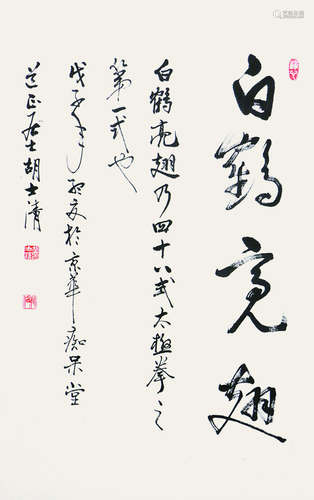 白鹤亮翅
白鹤亮翅乃四十八式太极拳之
第一式也
戊子年孟夏於京华痴呆堂
道正居士胡士清